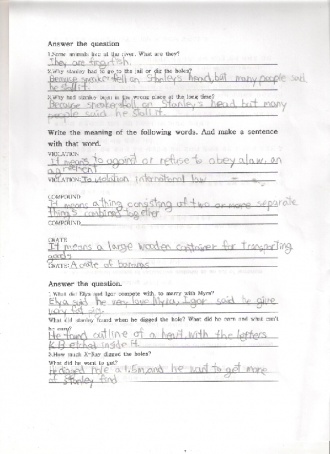 Answer the question
1.Some animals live at the river. What are they?
They are fish.
2.Why stanley had to go to the jail or dig the holes?
Because sneaker fell on Stanley's head, but many people said
he stoll it.
Because sneaker fell on Stanley's head but many
people said he stoll it.
Write the meaning of the following words. And make a sentence
with that word.
VIOLATION
It means to against or refuse to obey a law, an
agreement
VIOLATION To violation international law
COMPOUND
It means a thing consisting of two or more separate
things combined together
COMPOUND
CRATE
It means a large wooden container for transporting
goods
CRATE A crate of bananas
Answer the question.
1.What did Elya and Igor compete with, to marry with Myra?
Elya said he very love Myra, Igor said he give
very fat pig.
What did stanley found when he digged the hole? What did he earn and what can't
he earn?
He found outline of a heart, with the letters
K B etched inside it.
3.How much X-Ray digged the holes?
What did he want to get?
He digged hole a 1,5m and he want to get more
of Stanley find